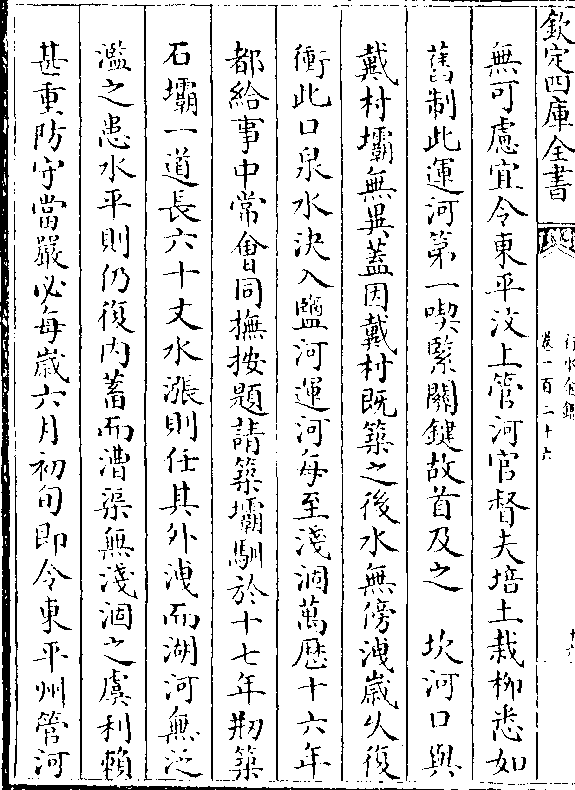 欽定四庫全書
行水金鑑
卷一百二十六
無可慮宜令東平汶上管河官督夫培土栽柳悉如
舊制此運河第一喫緊關鍵故首及之　坎河口與
戴村壩無異蓋因戴村既築之後水無傍洩嵗乆復
衝此口泉水決入鹽河運河每至淺涸萬厯十六年
都給事中常會同撫按題請築壩馴於十七年剏築
石壩一道長六十丈水漲則任其外洩而湖河無泛
濫之患水平則仍復内蓄而漕渠無淺涸之虞利賴
甚重防守當嚴必每嵗六月初旬即令東平州管河